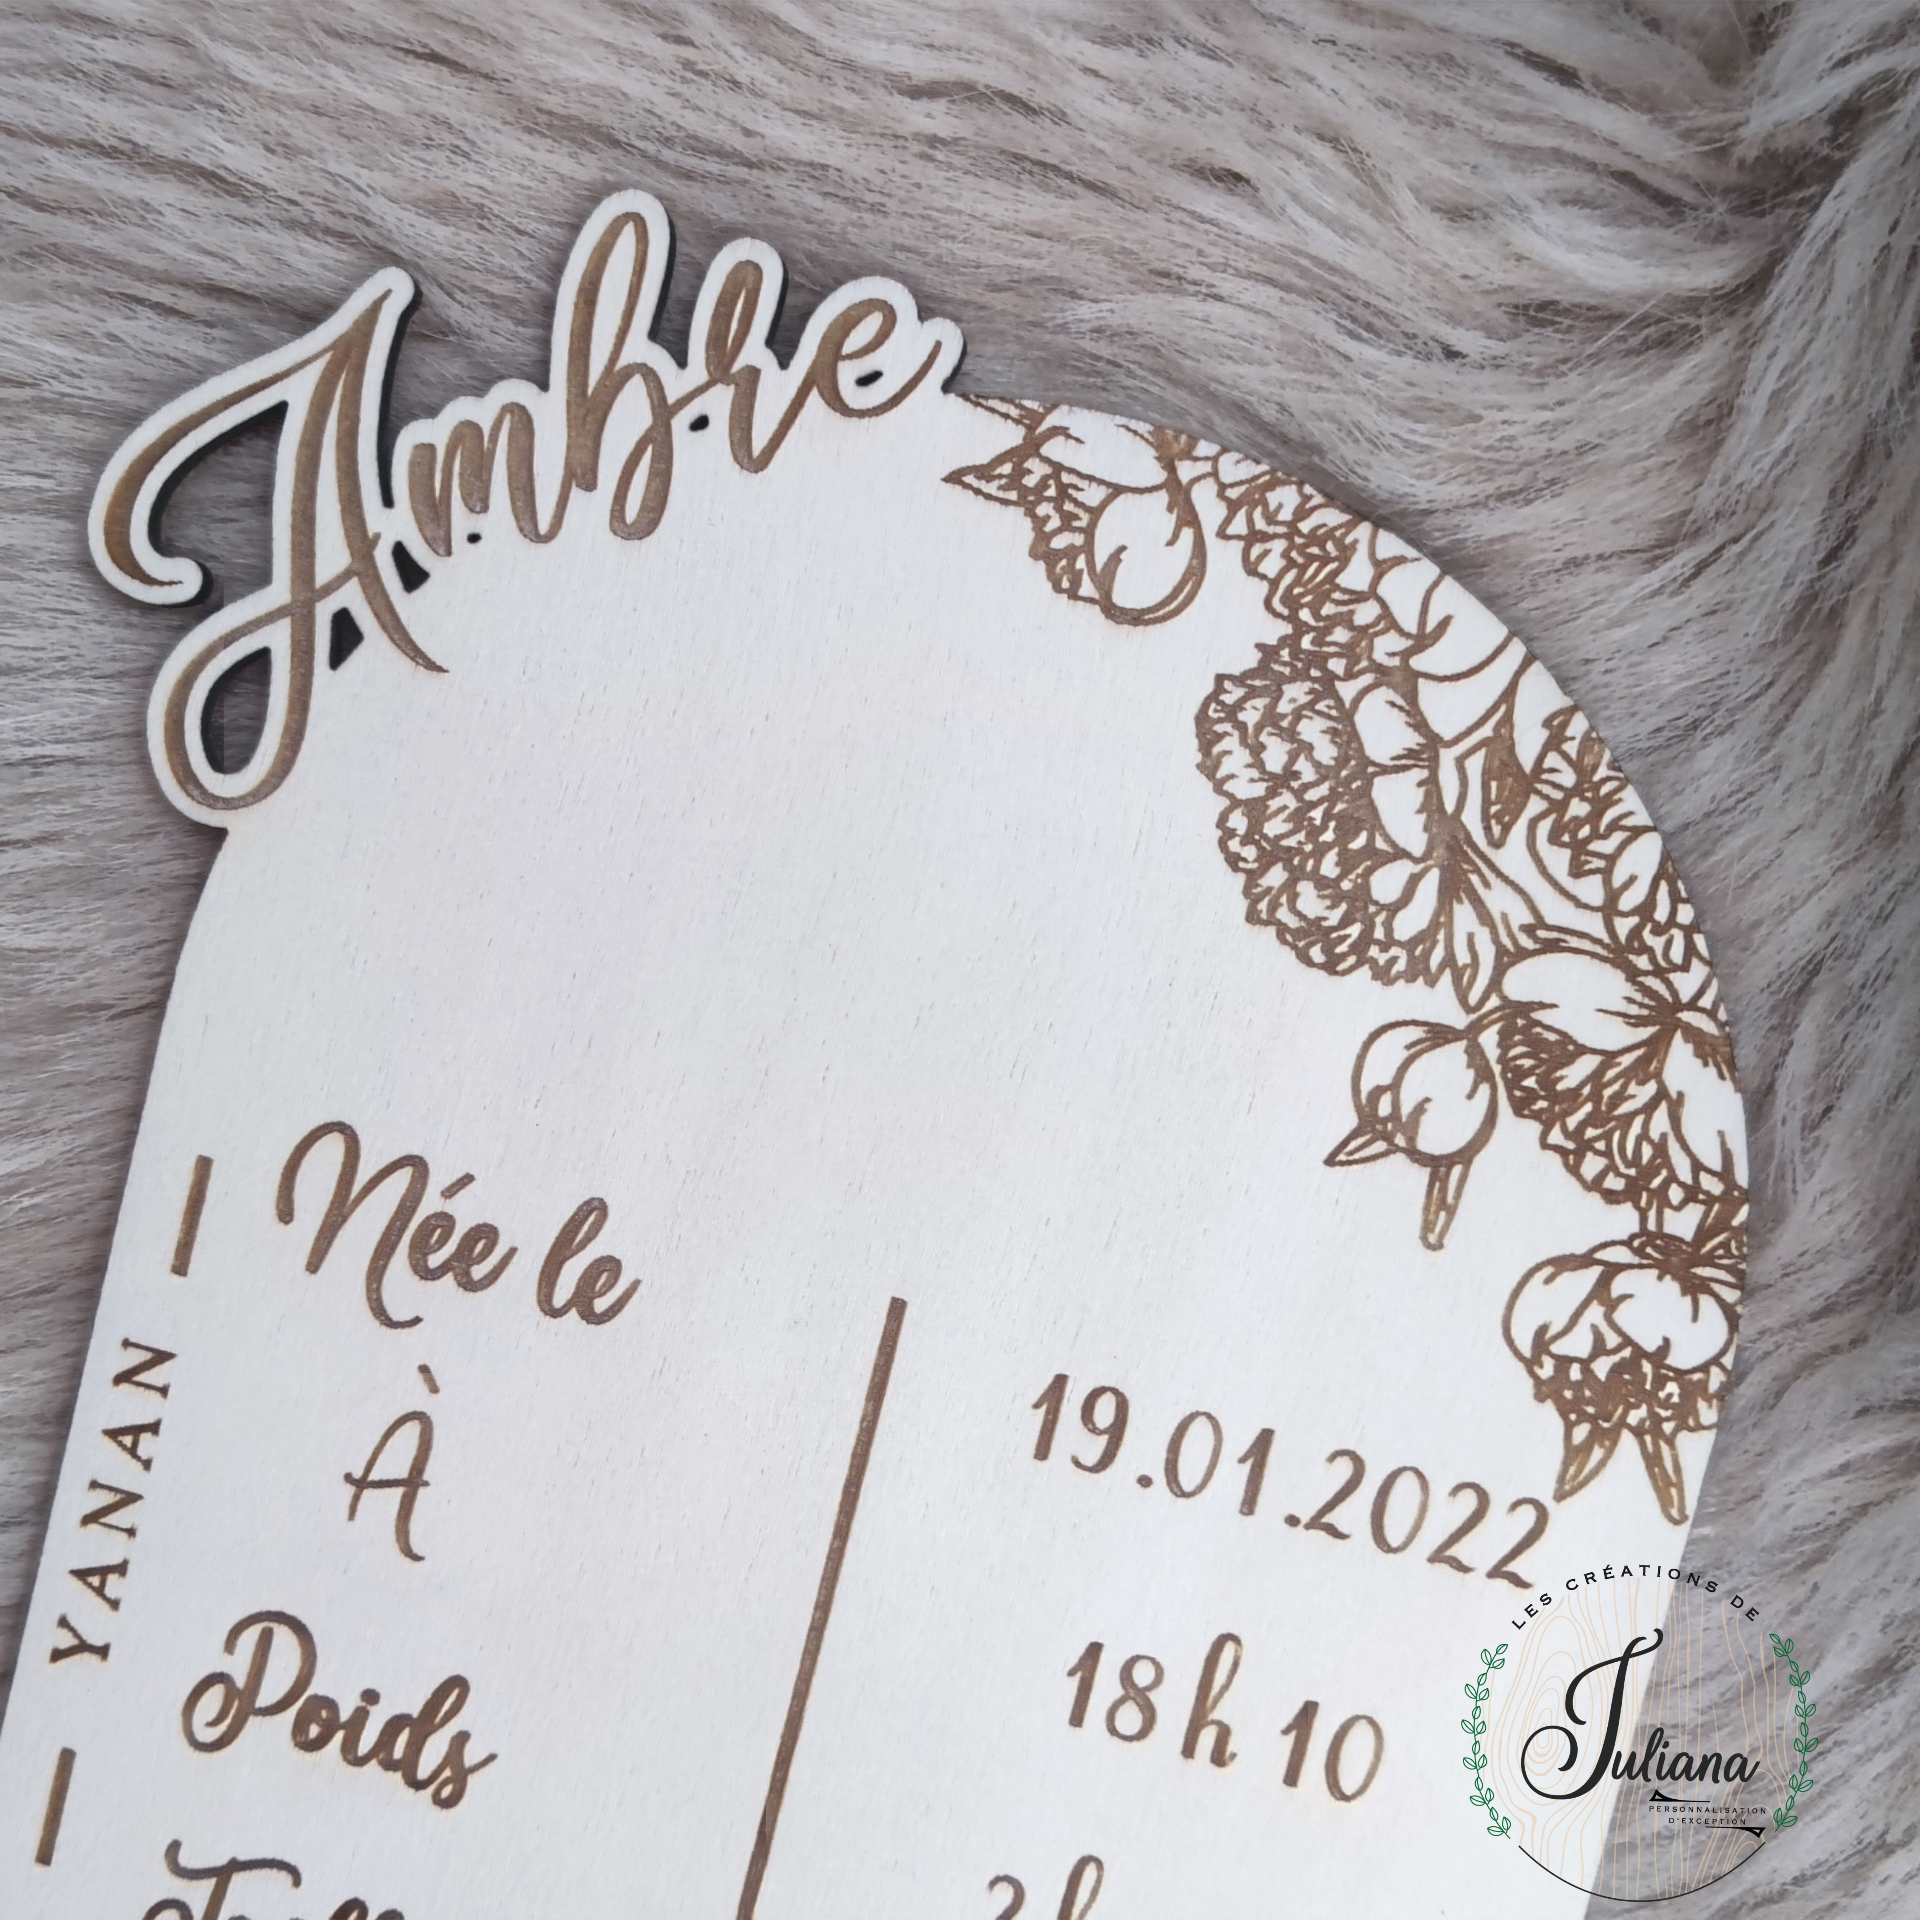 Ambre
Née le
19.01.2022
À
18h 10
Poids
YANAN
LES CRÉATIONS DE
Juliana
PERSONNALISATION
D'EXCEPTION